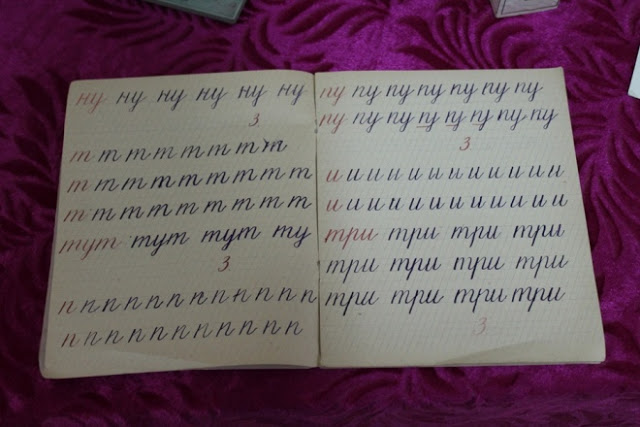 ну ну ну ну ну ну
3
т т т т т т т т
т т т т т т т т т
т т т т т т т т т
тут тут тут ту
3
п п п п п п п п п п п п п
п п п п п п п п п п п
пу пу пу пу пу пу пу
пу пу пу пу пу пу пу пу
3
и и и и и и и и и и и и
и и и и и и и и и и и и
три три три три
три три три три
три три три три
3